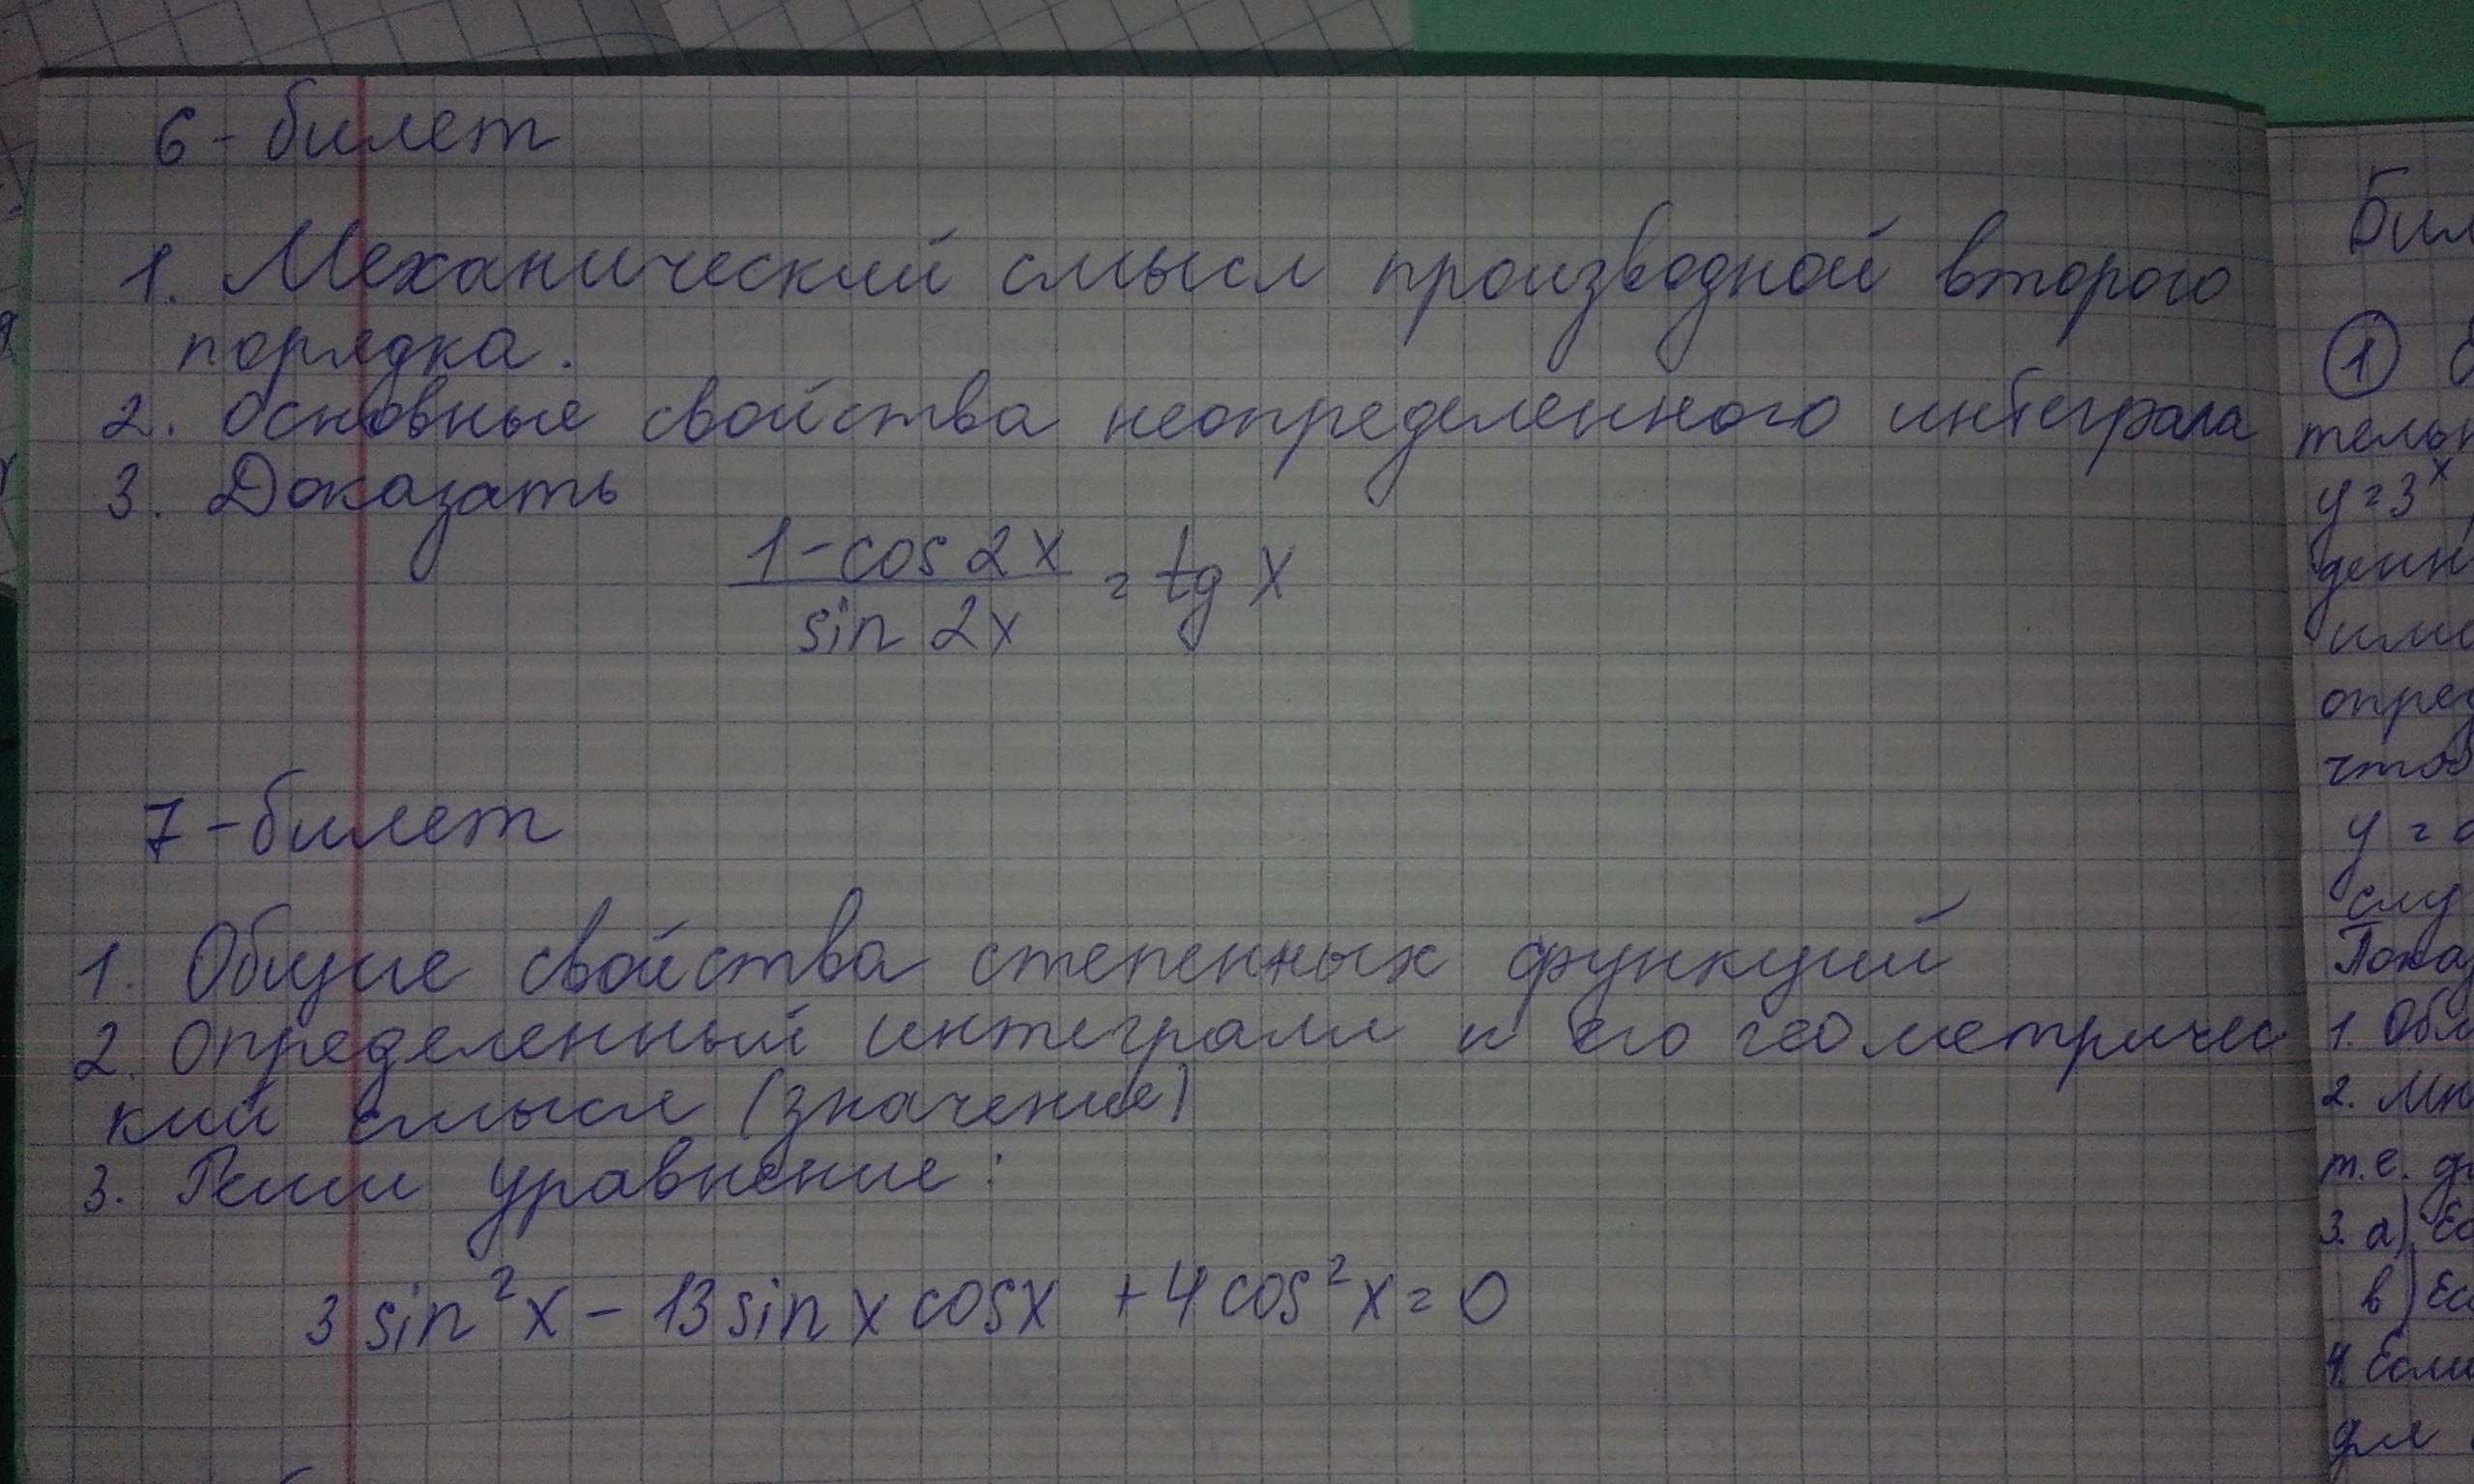 6 - билет
1. Механический смысл производной второго
порядка.
2. Основные свойства неопределенного интеграла
3. Доказать
1-cos 2x
sin 2x
= tg x
7 - билет
1. Общие свойства степенных функций
2. Определенный интеграл и его геометричес
кий смысл (значение)
3. Реши уравнение:
3 sin²x - 13 sin x cosx + 4 cos²x = 0
Бил
①
тельн
y = 3ˣ
денн
или
опред
чтоб
y =
слу
Показ
1. Обл
2. Мн
т.е.
3. а) Ес
в) Есл
4. Если
для